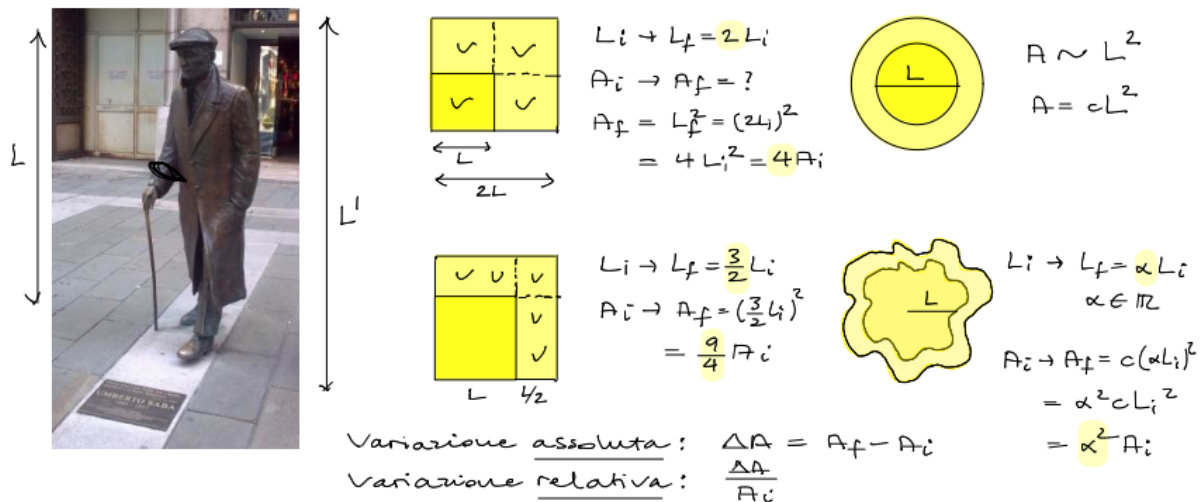 L
L'
UMBERTO SABA
✓ ✓
✓ ✓
L
2L
Li → Lf = 2Li
Ai → Af = ?
Af = Lf² = (2Li)²
= 4Li² = 4Ai
L
A ~ L²
A = cL²
✓ ✓ ✓
✓
✓
L L/2
Li → Lf = 3/2 Li
Ai → Af = (3/2 Li)²
= 9/4 Ai
L
Li → Lf = αLi
α ∈ ℝ
Ai → Af = c(αLi)²
= α²cLi²
= α²Ai
Variazione assoluta: ΔA = Af - Ai
Variazione relativa: ΔA/Ai